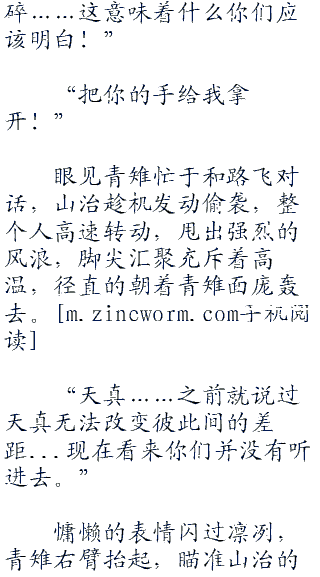 碎……这意味着什么你们应
该明白！”
“把你的手给我拿
开！”
眼见青雉忙于和路飞对
话，山治趁机发动偷袭，整
个人高速转动，甩出强烈的
风浪，脚尖汇聚充斥着高
温，径直的朝着青雉面庞轰
去。[m.zincworm.com手机阅
读]
“天真……之前就说过
天真无法改变彼此间的差
距...现在看来你们并没有听
进去。”
慵懒的表情闪过凛冽，
青雉右臂抬起，瞄准山治的